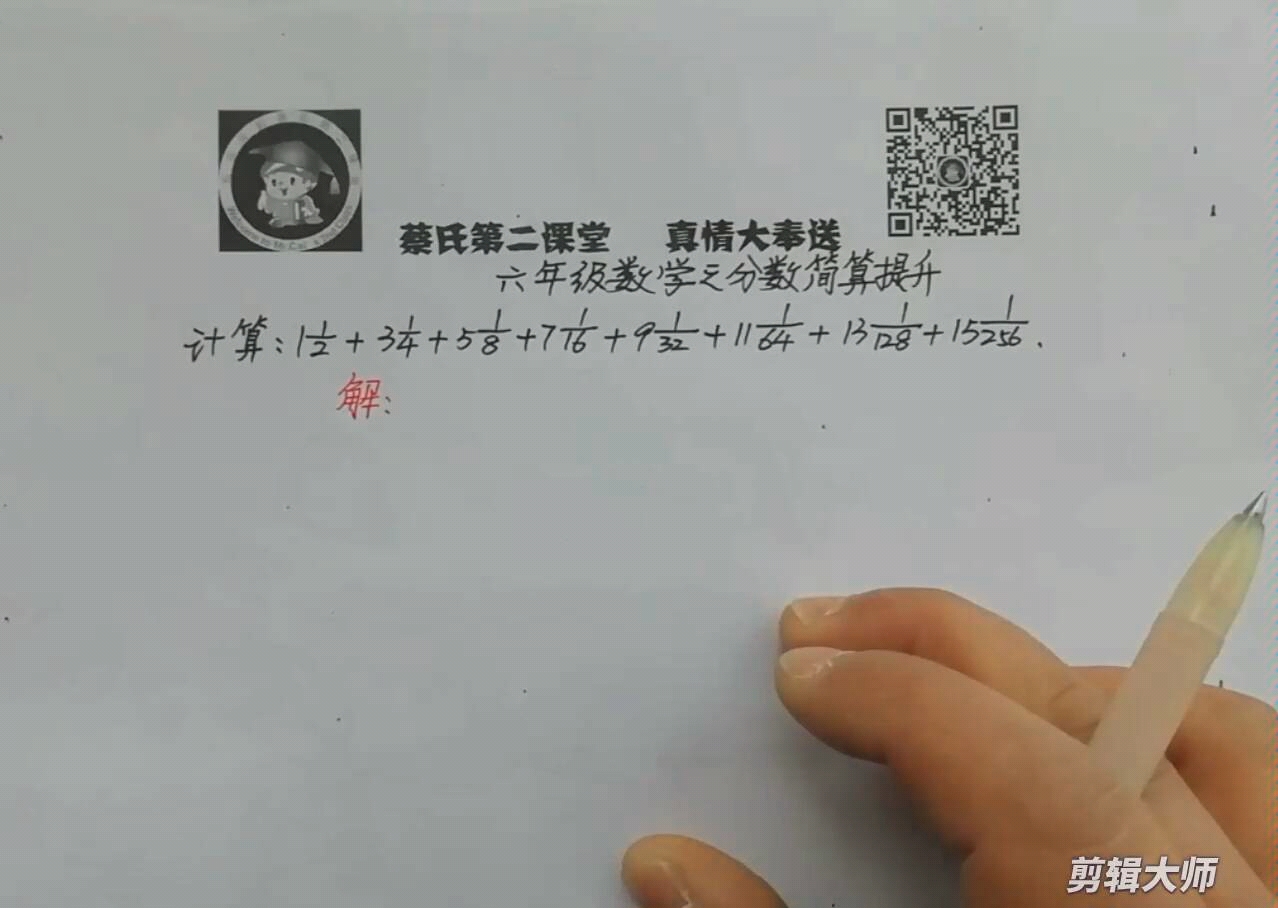 蔡氏第二课堂 真情大奉送
六年级数学之分数简算提升
计算:1 1/2 + 3 1/4 + 5 1/8 + 7 1/16 + 9 1/32 + 11 1/64 + 13 1/128 + 15 1/256.
解:
剪辑大师